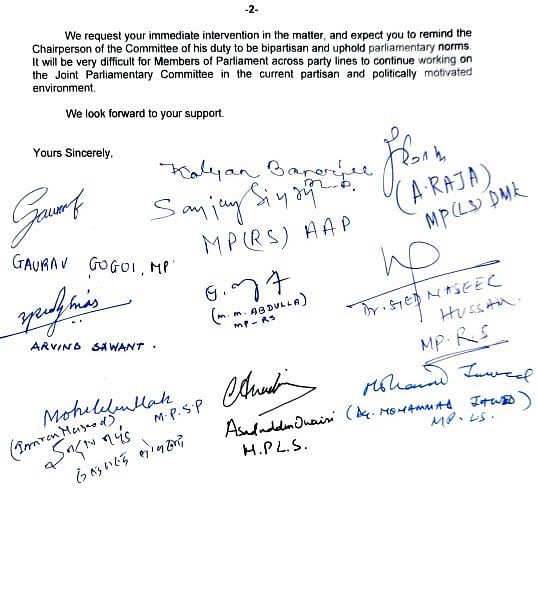 -2-
We request your immediate intervention in the matter, and expect you to remind the
Chairperson of the Committee of his duty to be bipartisan and uphold parliamentary norms.
It will be very difficult for Members of Parliament across party lines to continue working on
the Joint Parliamentary Committee in the current partisan and politically motivated
environment.
We look forward to your support.
Yours Sincerely,
Kalyan Banerjee
(A. RAJA)
MP(LS) DMK
Sanjay Singh
MP(RS) AAP
GAURAV GOGOI, MP
(M. M. ABDULLA)
MP-RS
Dr. SYED NASEER
HUSSAIN
MP. R.S
ARVIND SAWANT.
Mohibbullah
M.P. S.P
(Imran Masood)
Asaduddin Owaisi
M.P L.S.
Mohamad Jawed
(Dr. MOHAMMAD JAWED)
MP. LS.